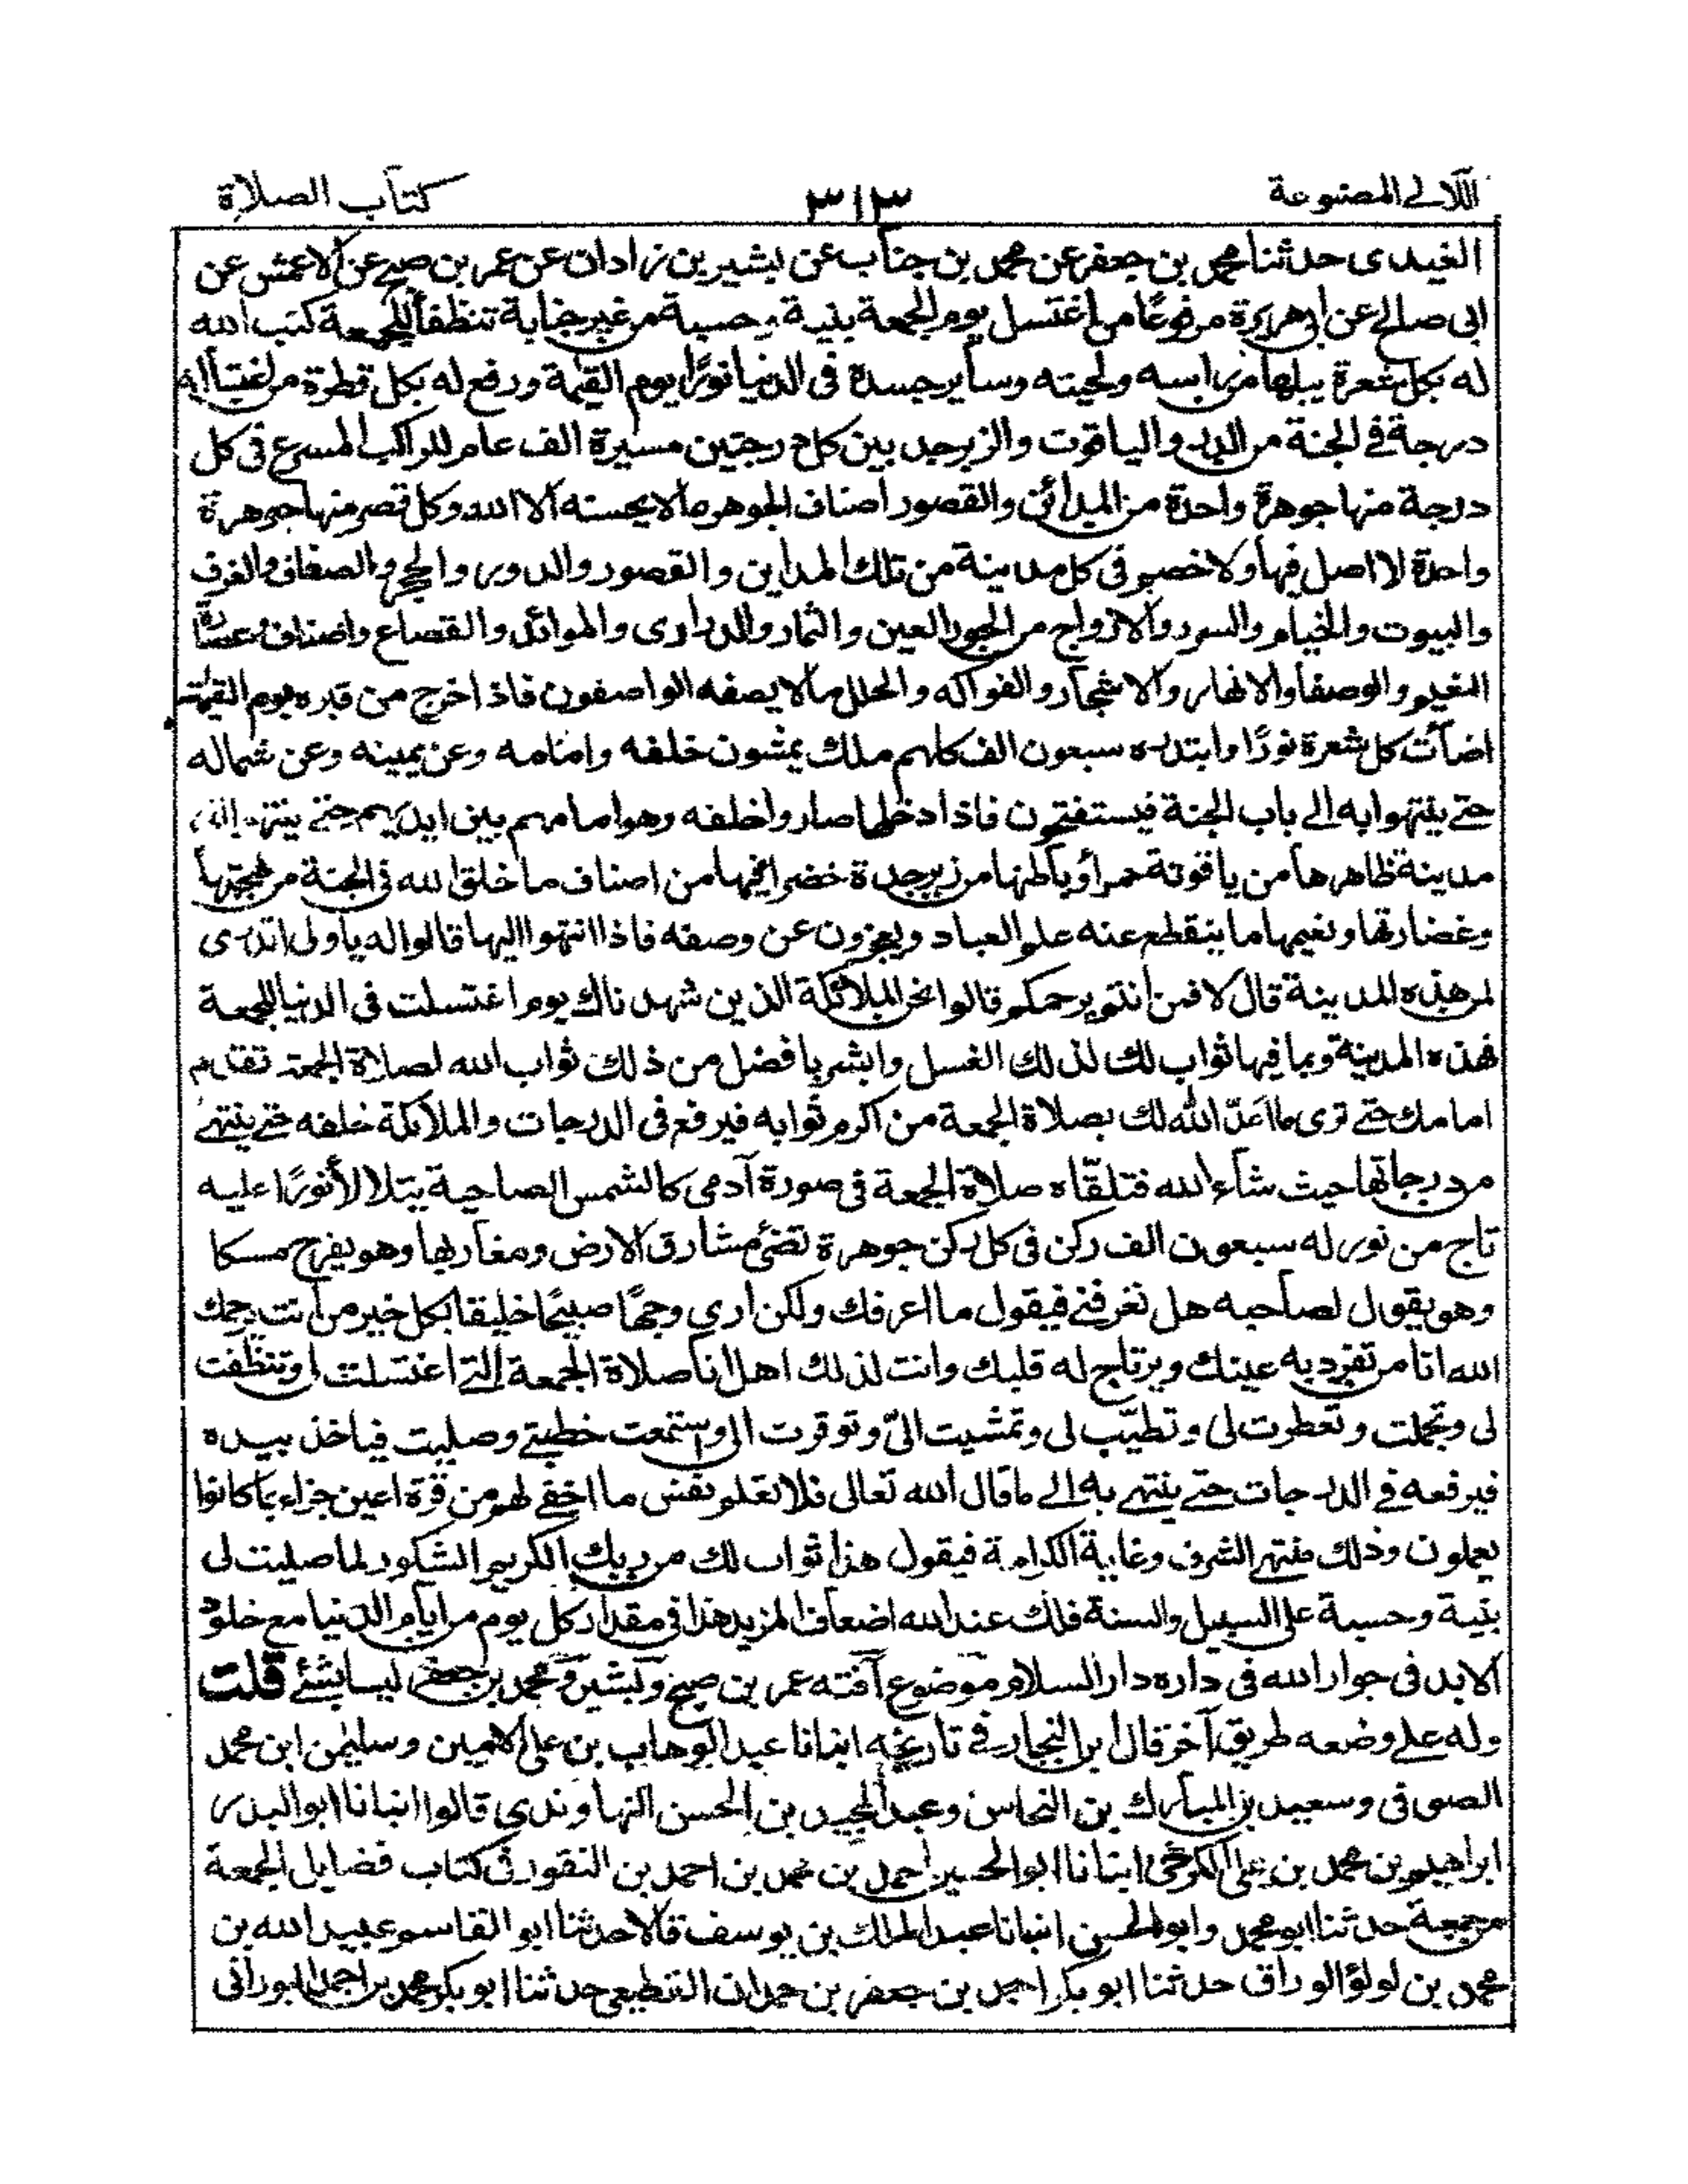 اللآلى المصنوعة
٣١٣
كتاب الصلاة
الغيدى حدثنا محمد بن جعفر عن محمد بن جناب عن بشير بن زادان عن عمر بن صبح عن الاعمش عن
ابى صالح عن ابى هريرة مرفوعًا من اغتسل يوم الجمعة بنية وحسبة من غير جنابة تنظفا للجمعة كتب الله
له بكل شعرة يبلها من رأسه ولحيته وساير جسده فى الدنيا نورًا يوم القيمة ورفع له بكل قطرة من اغتساله
درجة فى الجنة من الدر والياقوت والزبرجد بين كل درجتين مسيرة الف عام للراكب المسرع فى كل
درجة منها جوهرة واحدة من المدائن والقصور اصناف الجوهر مالا يحسنه الا الله وكل قصر منها جوهرة
واحدة لا اصل فيها ولا خصم فى كل مدينة من تلك المداين والقصور والدور والحجر والصفاف والغرف
والبيوت والخيام والسرر والازواج من الحور العين والثمار والدرارى والموائد والقصاع واصناف
النعيم والوصفا والانهار والاشجار والفواكه والحلل مالا يصفه الواصفون فاذا خرج من قبره يوم القيمة
اضآت كل شعرة نورًا وابتدره سبعون الف كلهم ملك يمشون خلفه وامامه وعن يمينه وعن شماله
حتى ينتهوا به الى باب الجنة فيستفتحون فاذا دخلها صاروا خلفه وهو امامهم بين ايديهم حتى ينتهى الى
مدينة ظاهرها من ياقوتة حمرآ وباطنها من زبرجدة خضرا فيها من اصناف ما خلق الله فى الجنة من بهجتها
وغضارتها ونعيمها ما ينقطع عنه علم العباد ويعجزون عن وصفه فاذا انتهوا اليها قالوا له ياولى اتدرى
لمن هذه المدينة قال لا فمن انتم يرحمكم قالوا نحن الملائكة الذين شهدناك يوم اغتسلت فى الدنيا للجمعة
فهذه المدينة وبما فيها ثواب لك لذلك الغسل وابشر بافضل من ذلك ثواب الله لصلاة الجمعة تقدم
امامك حتى ترى ما اعدّ الله لك بصلاة الجمعة من اكرم ثوابه فيرفع فى الدرجات والملائكة خلفه حتى ينتهى
من درجاتها حيث شآء الله فتلقاه صلاة الجمعة فى صورة آدمى كالشمس الصاحية يتلالا نورًا عليه
تاج من نور له سبعون الف ركن فى كل ركن جوهرة تضئ مشارق الارض ومغاربها وهو يفرح مسكا
وهو يقول لصاحبه هل تعرفنى فيقول ما اعرفك ولكن ارى وجهًا صبيحًا خليقا بكل خير من انت رحمك
الله انا من تقر به عينك ويرتاح له قلبك وانت لذلك اهل انا صلاة الجمعة التى اغتسلت لى وتنظفت
لى وتجملت وتعطرت لى وتطيّب لى وتمشيت الىّ وتوقرت الى واستمعت خطبتى وصليت فياخذ بيده
فيرفعه فى الدرجات حتى ينتهى به الى ما قال الله تعالى فلا تعلم نفس ما اخفى لهم من قرة اعين جزاء بما كانوا
يعملون وذلك منتهى الشرف وغاية الكرامة فيقول هذا ثواب لك من ربك الكريم الشكور لما صليت لى
بنية وحسبة على السبيل والسنة فلك عند الله اضعاف المزيد هذا فى مقدار كل يوم من ايام الدنيا مع خلود
الابد فى جوار الله فى داره دار السلام موضوع آفته عمر بن صبح وبشير ومحمد بن جعفر ليسا بشئ قلت
وله على وضعه طريق آخر قال ابن النجار فى تاريخه انبانا عبد الوهاب بن على الامين وسليمن ابن محمد
الصوفى وسعيد بن المبارك بن النحاس وعبد المجيد بن الحسن النهاوندى قالوا انبانا ابو البدر
ابراهيم بن محمد بن على الكرخى انبانا ابو الحسين احمد بن محمد بن احمد بن النقور فى كتاب فضايل الجمعة
من جمعه حدثنا ابو محمد وابو الحسن انبانا عبد الملك بن يوسف قالا حدثنا ابو القاسم عبيد الله بن
محمد بن لولؤ الوراق حدثنا ابو بكر احمد بن جعفر بن حمدان القطيعى حدثنا ابو بكر محمد بن احمد البورانى